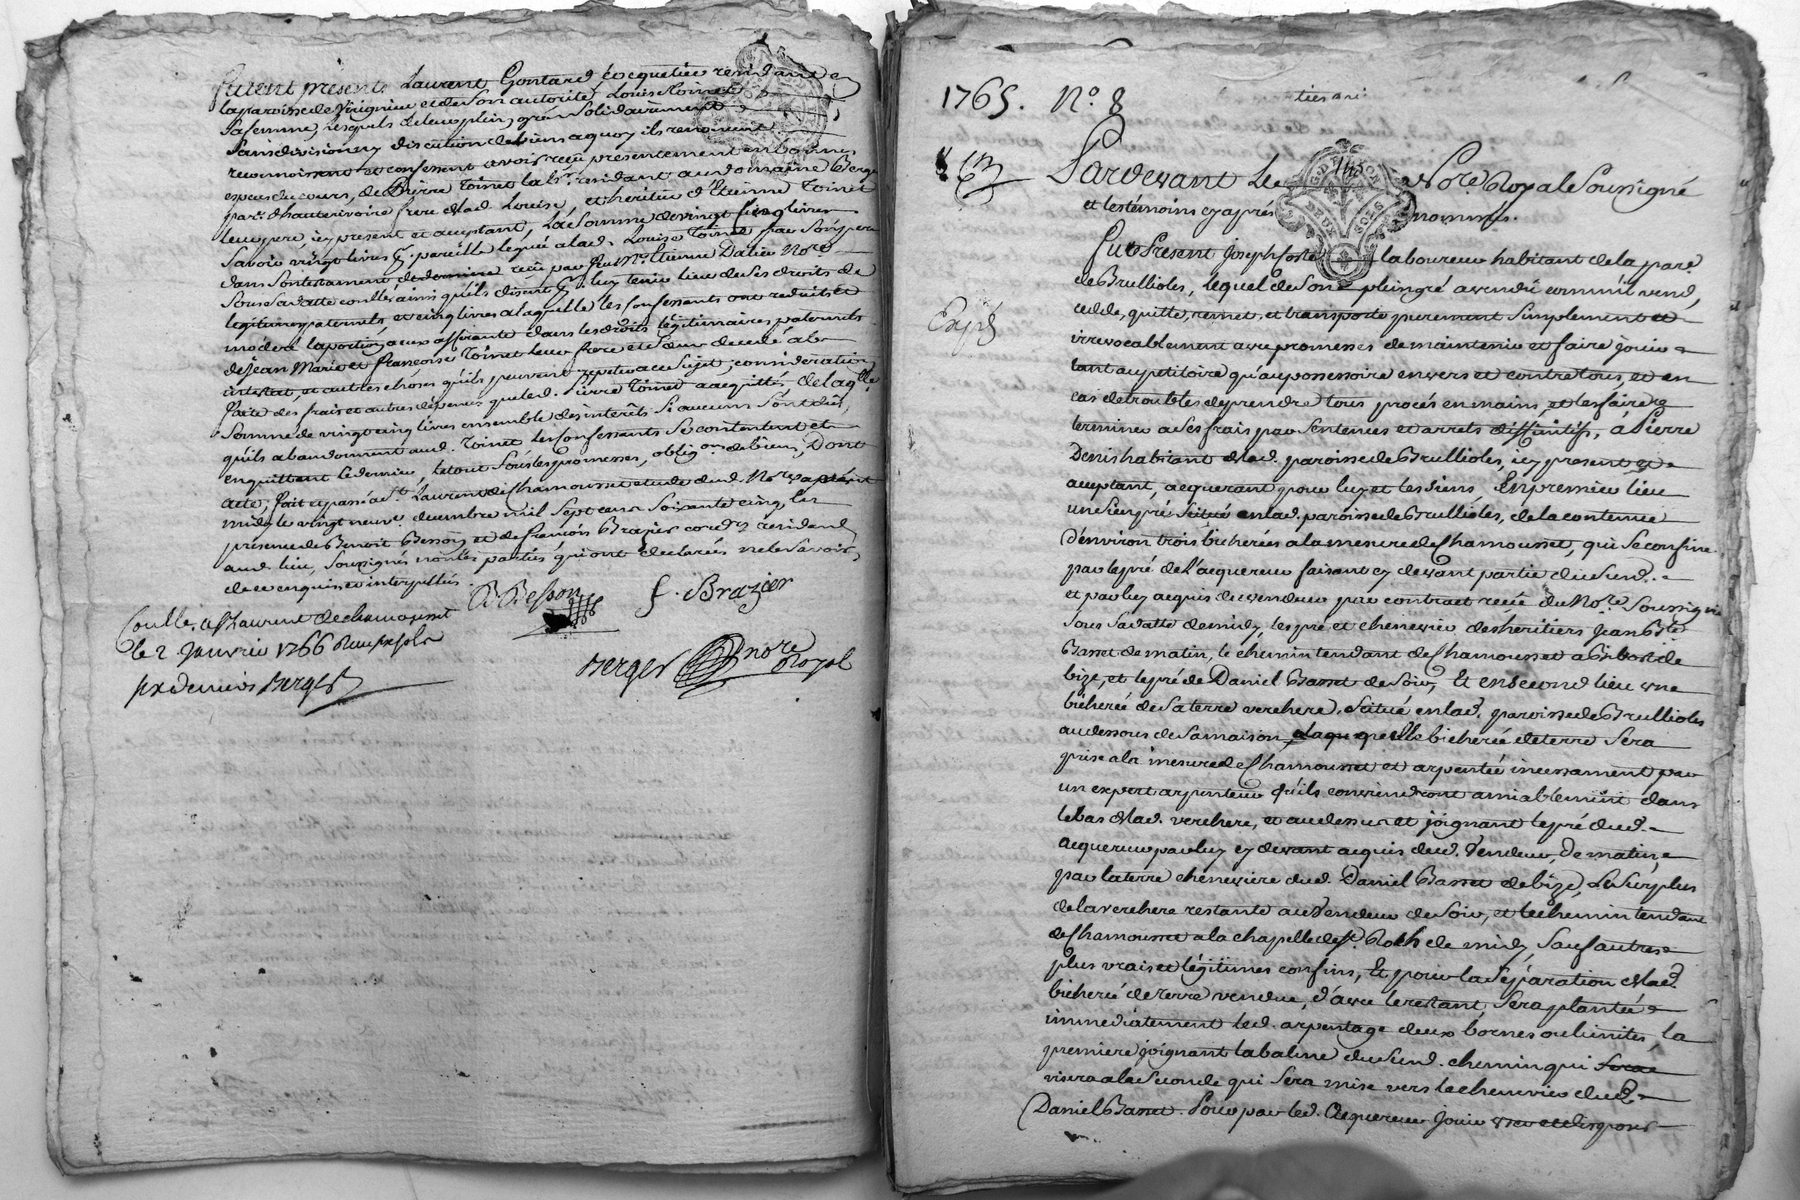 furent présents Laurent Gontard écoquetier résidant en
la paroisse de Virignieu et de son autorité Louise Toinet
sa femme, lesquels de leur plein gré, solidairement
sans division ny discution de biens a quoy ils renoncent
reconnoissent et confessent avoir reçu présentement en bonnes
espèces du cours, de Pierre Toinet lab.r résidant au domaine Berge
par. d'hauterivoire frere de lad. Louise, et héritier d'Etienne Toinet
leur pere, icy présent et acceptant, La somme de vingt cinq livres
savoir vingt livres pareille léguée a lad. Louise Toinet par son pere
dans son testament reçu par feu M.e Etienne Dalier No.re
sous sa datte conllé ainsi qu'ils disent luy tenir lieu de ses droits de
legitime paternels, et cinq livres a laquelle les confessants ont reduit et
modéré la portion a eux afférante dans les droits légitimaires paternels
de Jean Marie et françoise Toinet leur frere et soeur décédé ab
intestat, et autres choses qu'ils peuvent répéter a ce sujet, considération
faite des frais et autres dépenses que led. Pierre Toinet a acquittés, de laq.lle
somme de vingt cinq livres ensemble des intérêts si aucuns sont dûs,
qu'ils abandonnent aud. Toinet les confessants se contentent et
en quittent le dernier, le tout sous les promesses, oblig.on de biens, Dont
acte, fait et passé a S.t Laurent de Chamousset etude dud. No.re
midy le vingt neuf décembre mil sept cens soixante cinq en
présence de Benoit Besson et de françois Brazier cord.r résidand
aud. lieu, soussignés non les parties qui ont declarées ne le savoir
de ce enquis et interpellés
B Besson
f. Brazier
Conllé a S.t Laurent de chamousset
le 2 Janvier 1766 Reçu six sols
six deniers Berger
Berger nore Royal
1765. N.o 8
Pardevant Le No.re Royal Soussigné
G.D. DE LYON
DEUX SOLS
et les témoins cy après nommés.
fut Présent Joseph Coste laboureur habitant de la par.e
de Brullioles, lequel de son plein gré a vendu comme il vend,
cedde, quitte, remet, et transporte purement simplement et
Exp.é
irrévocablement avec promesses de maintenir et faire jouir
tant au petitoire qu'au possessoire envers et contre tous, et en
cas de troubles de prendre tous procés en mains, et les faire
terminer a ses frais par sentences et arrets diffinitifs, à Pierre
Denis habitant de lad. paroisse de Brullioles, icy présent et
acceptant, acquerant pour luy et les siens, En premier lieu
une sien pré situé en lad. paroisse de Brullioles, de la contenue
d'environ trois bicherées a la mesure de Chamousset, qui se confine
par le pré de L'acquereur faisant cy devant partie du susd.
et par luy acquis du vendeur par contract reçu du No.re Soussigné
sous sa datte de midy, les pré et chenevier des héritiers Jean B.te
Basset de matin, le chemin tendant de Chamousset a Bibost de
bize, et le pré de Daniel Basset de Soir, Et en second lieu une
bicherée de sa terre verchere, située en lad. paroisse de Brullioles
au dessous de sa maison, laquelle bicherée de terre sera
prise a la mesure de Chamousset et arpentée incessament par
un expert arpenteur qu'ils conviendront amiablement dans
le bas de lad. verchere, et au dessus et joignant le pré dud.
acquereur par luy cy devant acquis dud. Vendeur, De matin
par la terre cheneviere dud. Daniel Basset de bize, Le surplus
de la verchere restante au Vendeur de Soir, et le chemin tendant
de Chamousset a la chapelle de S.t Roch de midy, sauf autres
plus vrais et légitimes confins, Et pour la séparation de lad.
bicherée de terre vendue, d'avec le restant, sera planté
immédiatement led. arpentage deux bornes ou limites, la
premiere joignant la balme du susd. chemin qui
visera a la seconde qui sera mise vers le chenevier dud.
Daniel Basset. Pour par led. Acquereur jouir user et disposer